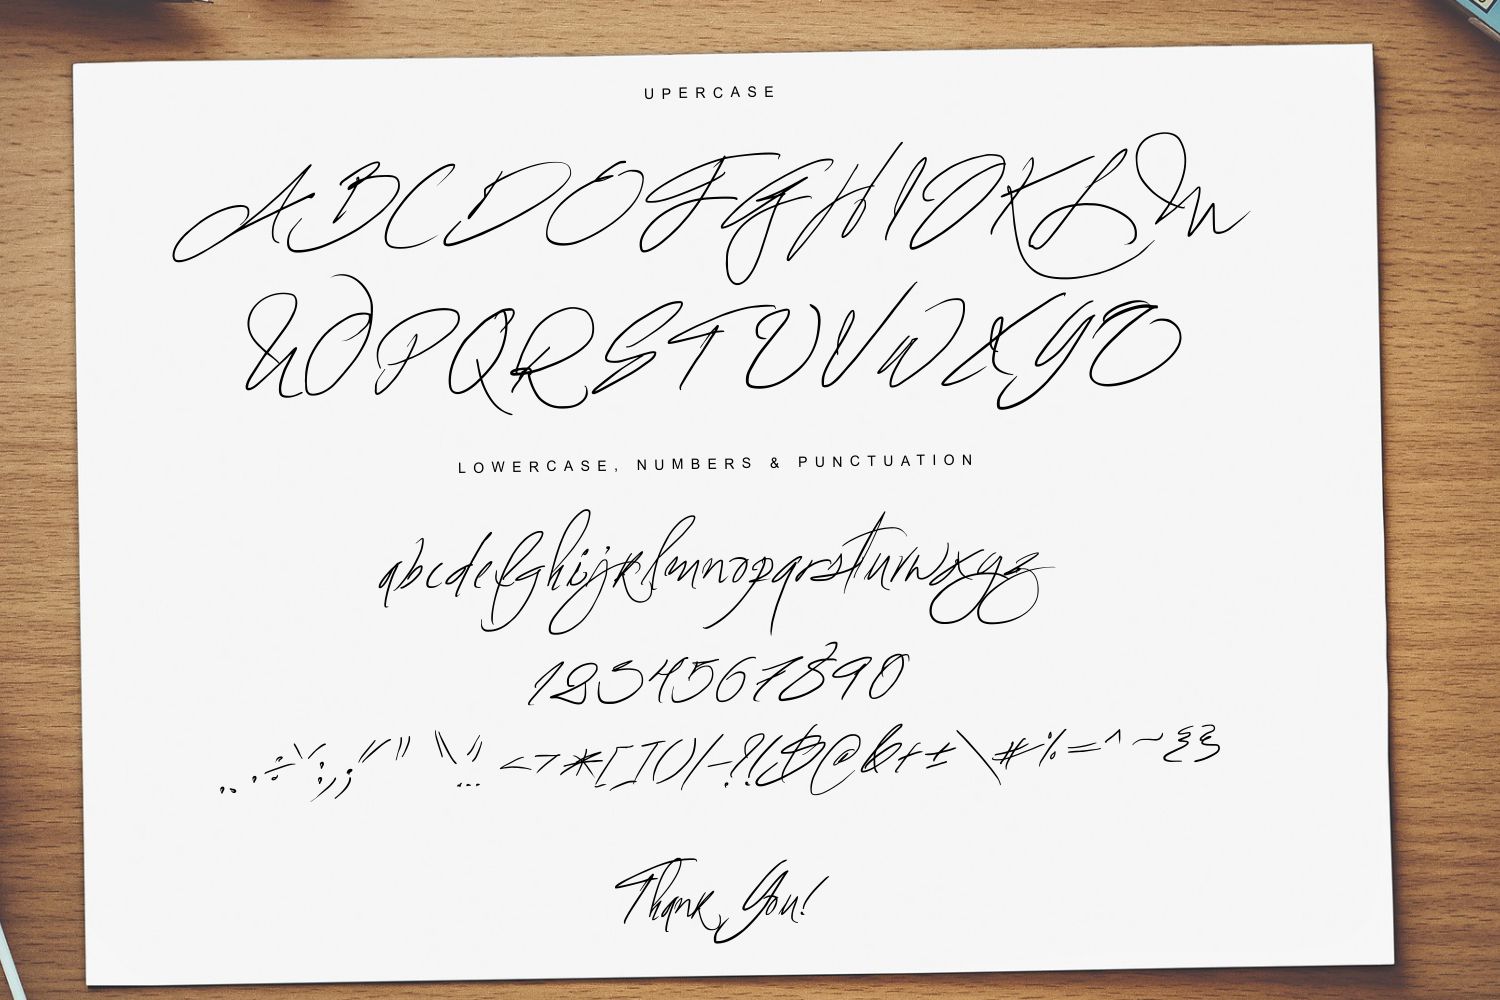 UPERCASE
ABCDEFGHIJKLM
NOPQRSTUVWXYZ
LOWERCASE, NUMBERS & PUNCTUATION
abcdefghijklmnopqrstuvwxyz
1234567890
<>*[]()/-?!$@&+±\#%=^~{}
Thank You!